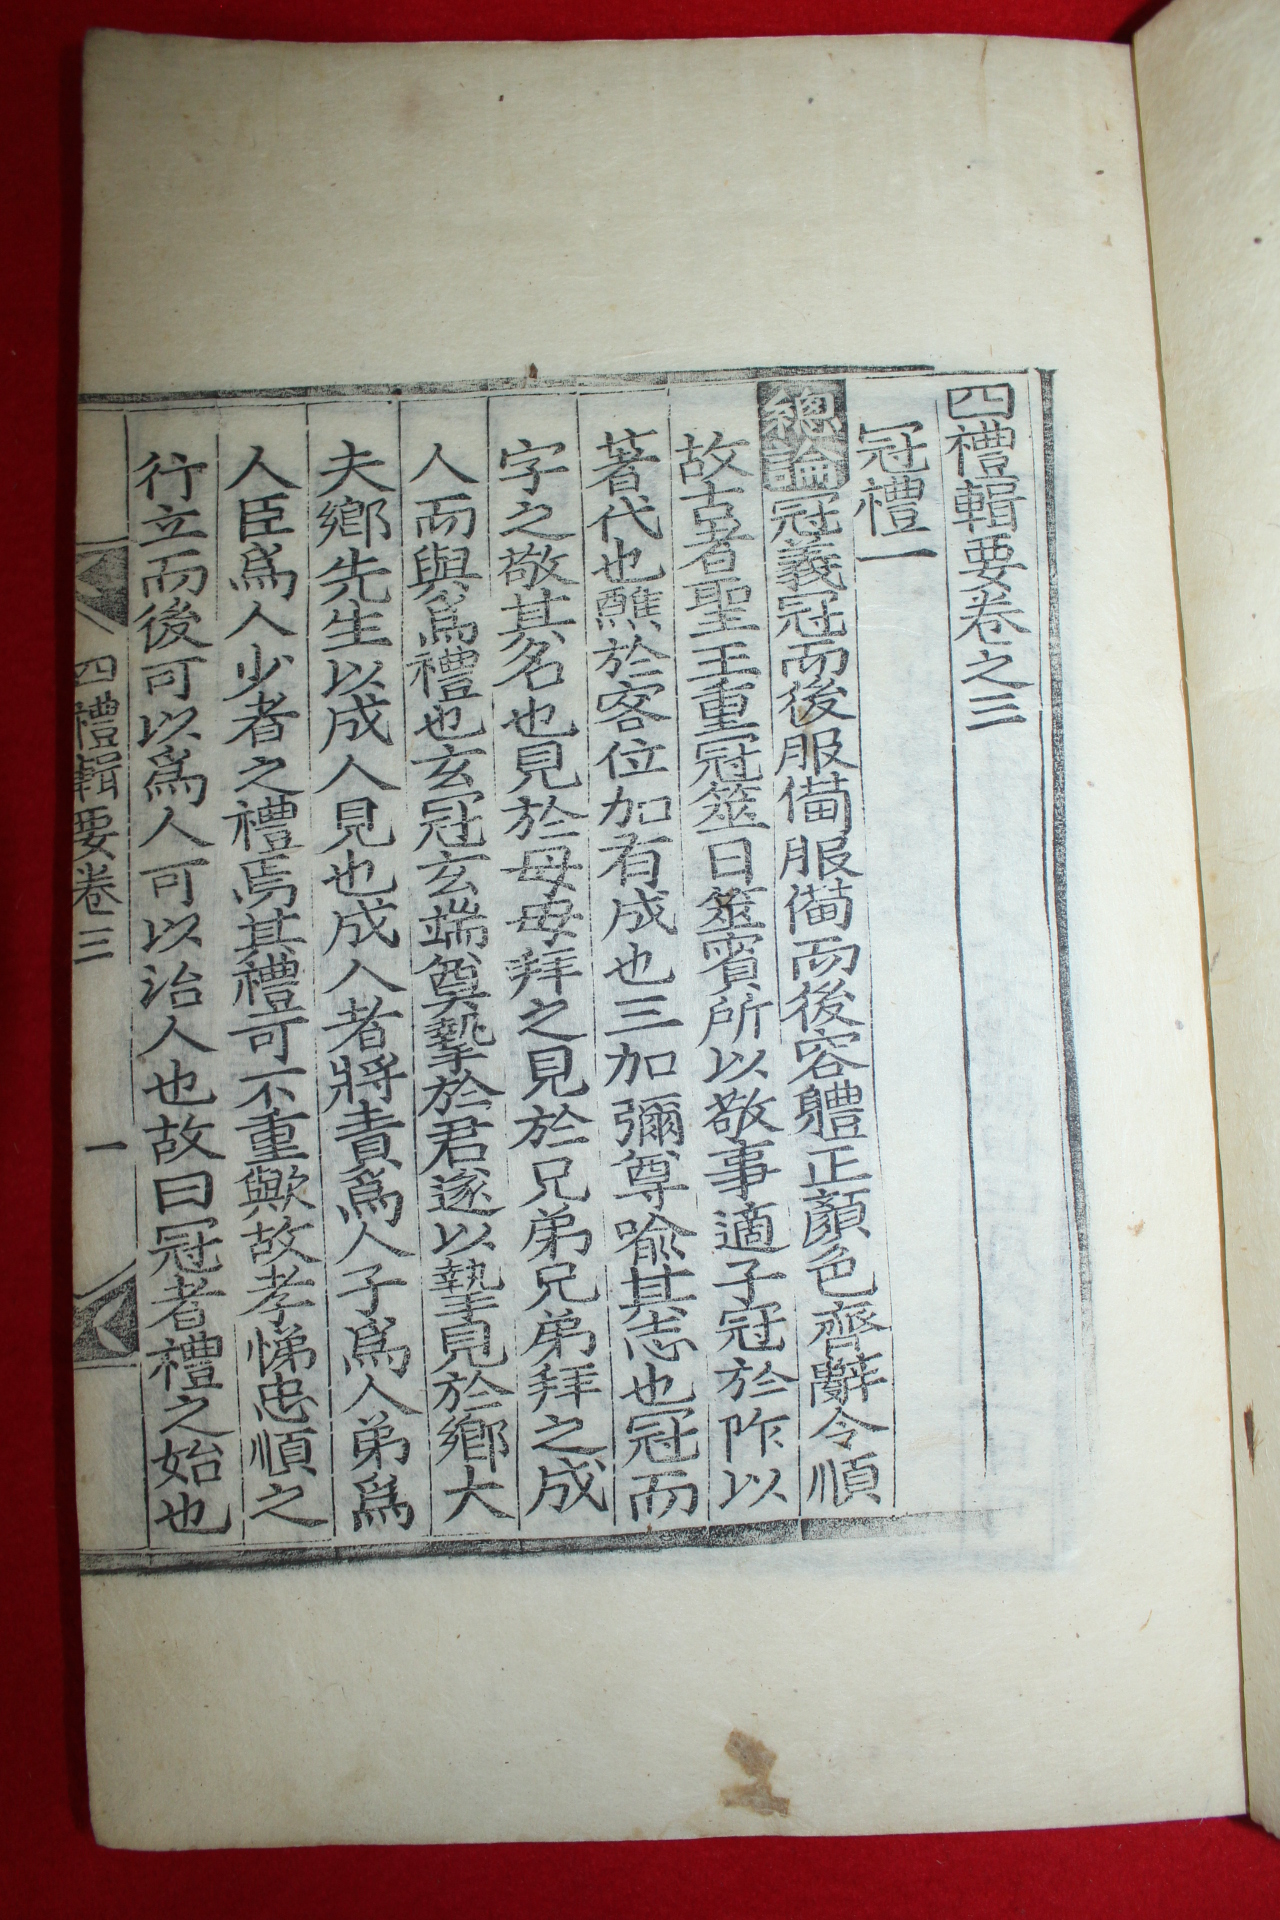 四禮輯要卷之三
冠禮一
總論冠義冠而後服備服備而後容體正顏色齊辭令順
故古者聖王重冠筮日筮賓所以敬事適子冠於阼以
著代也醮於客位加有成也三加彌尊喩其志也冠而
字之敬其名也見於母母拜之見於兄弟兄弟拜之成
人而與爲禮也玄冠玄端奠摯於君遂以摯見於鄕大
夫鄕先生以成人見也成人者將責爲人子爲人弟爲
人臣爲人少者之禮焉其禮可不重歟故孝悌忠順之
行立而後可以爲人可以治人也故曰冠者禮之始也
四禮輯要卷三 一